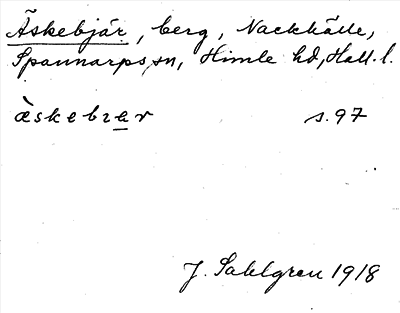 Äskebjär, berg, Nackhälle,
Spannarps sn, Himle hd, Hall. l.
àskebrar s. 97
J. Sahlgren 1918